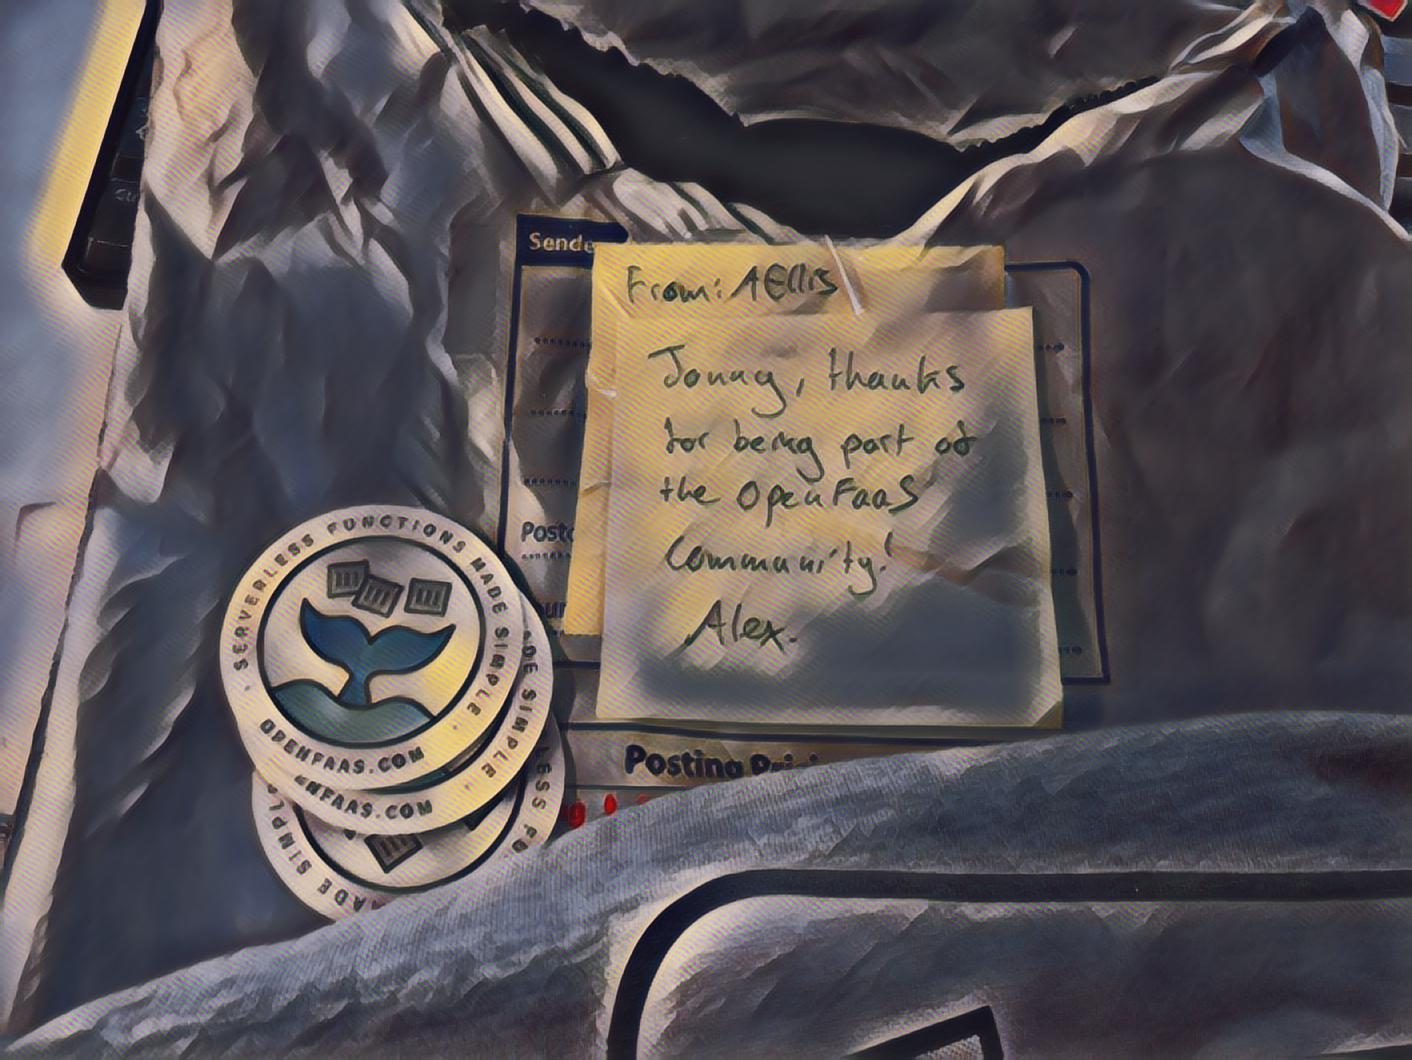 Sende
From: AEllis
Jonny, thanks
for being part of
the OpenFaaS
Community!
Alex.
Postc
SERVERLESS FUNCTIONS MADE SIMPLE
OPENFAAS.COM
DE SIMPLE
ENFAAS.COM
LESS FU
MADE SIMPL
Posting